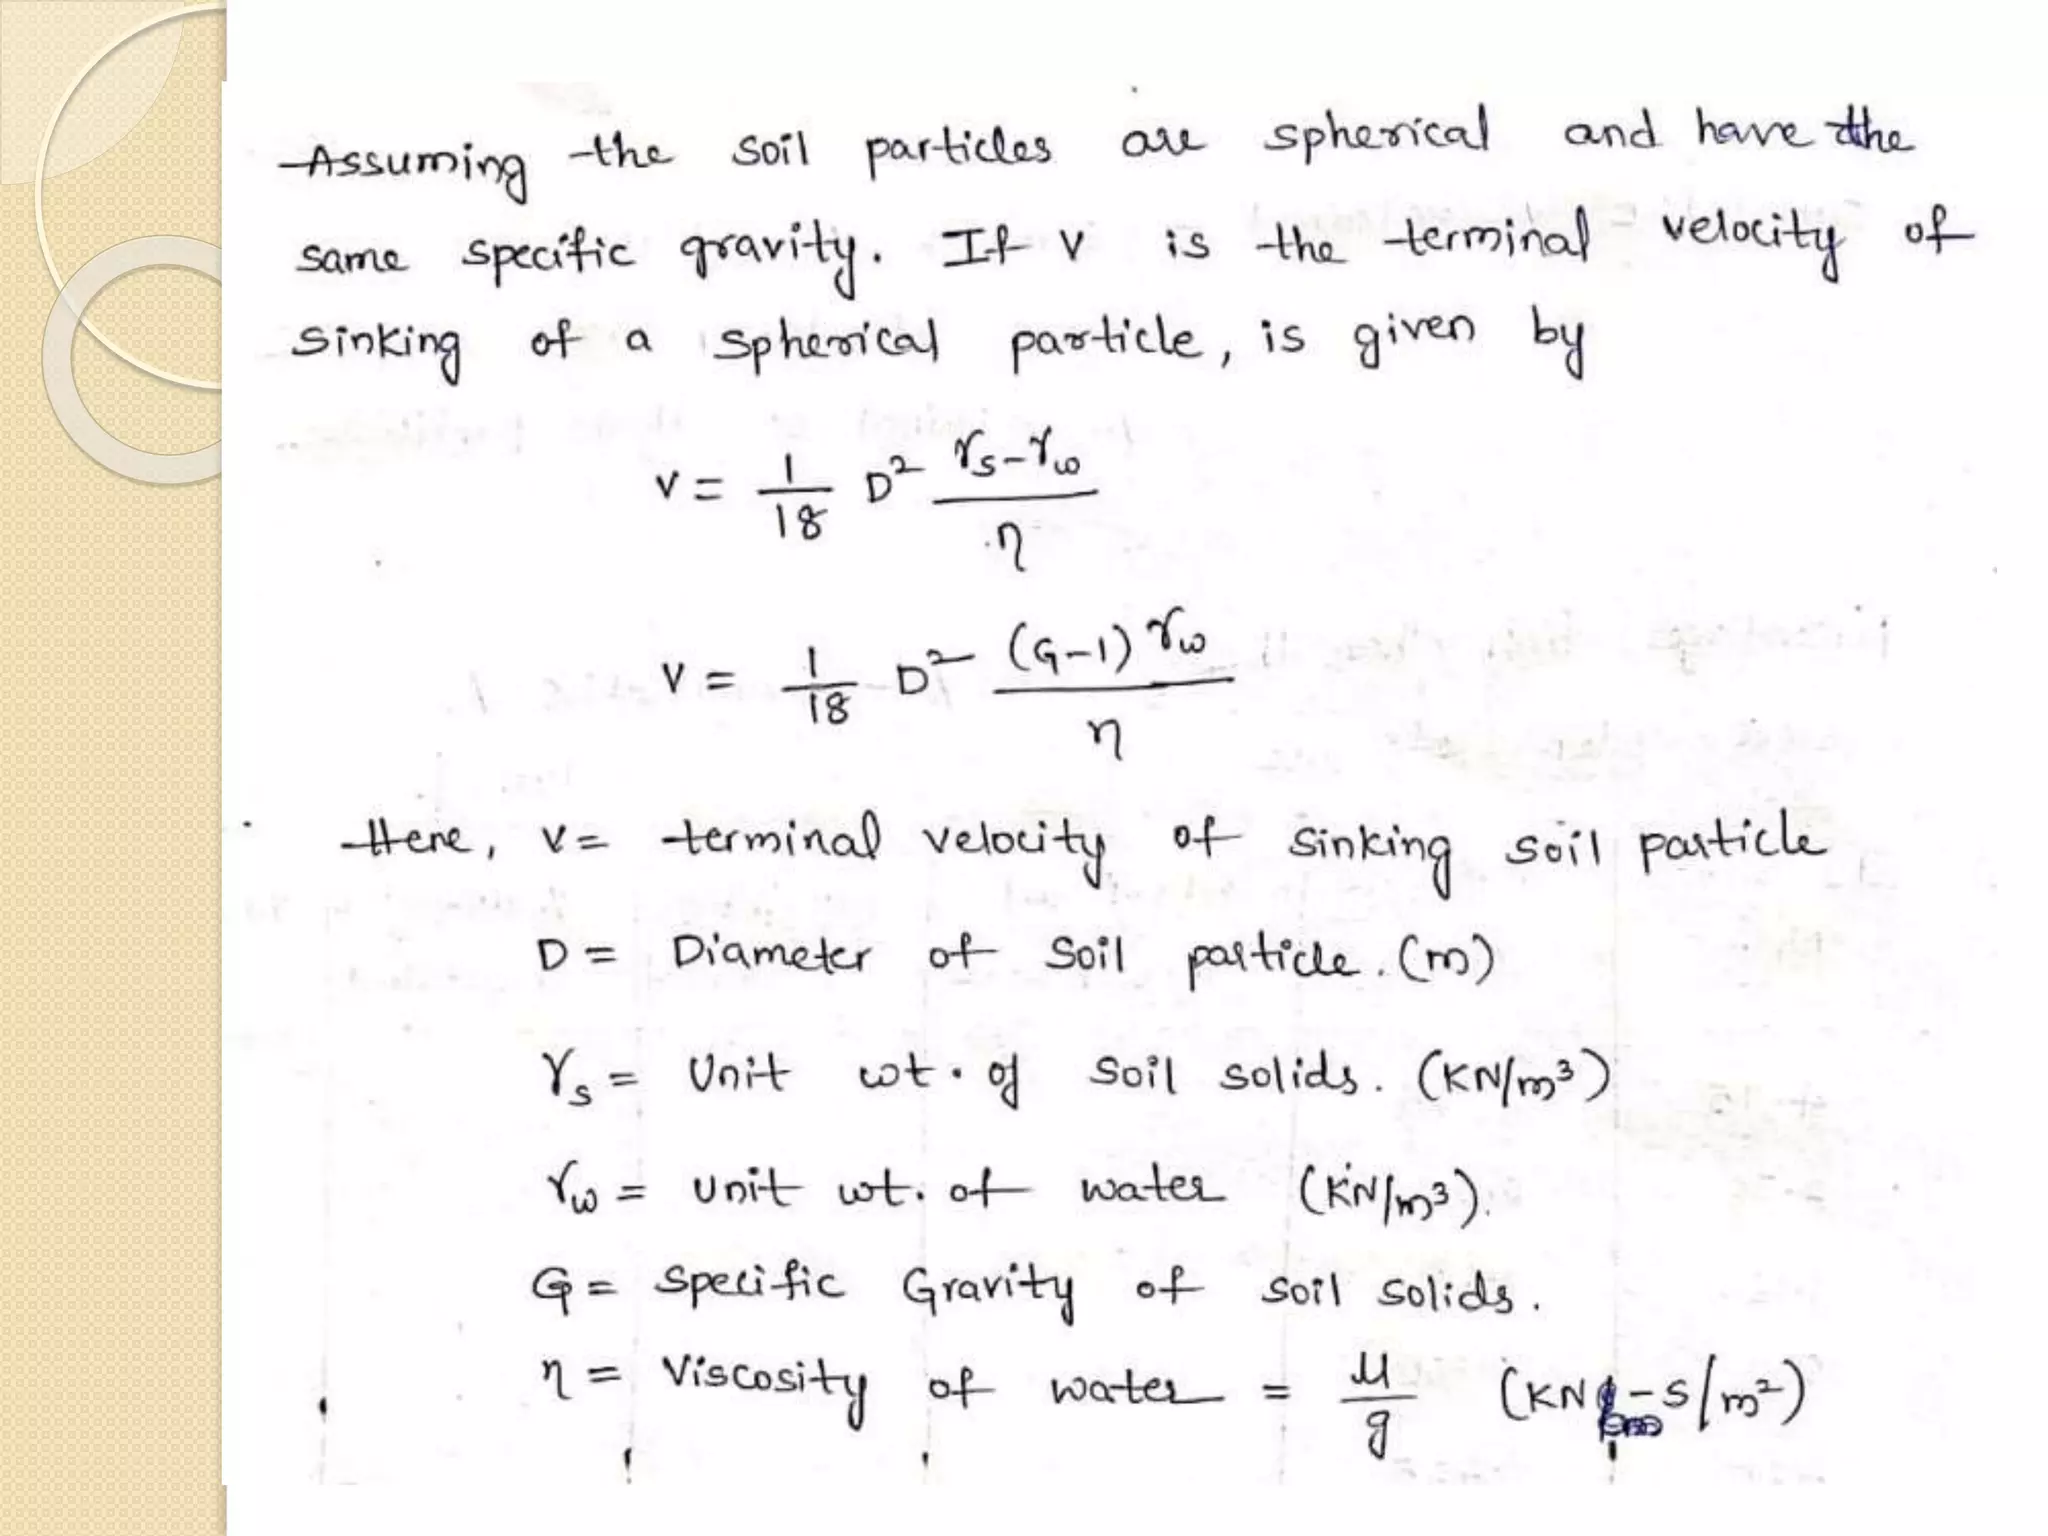 Assuming the soil particles are spherical and have the
same specific gravity. If v is the terminal velocity of
sinking of a spherical particle, is given by
v = 1/18 D² γs-γw / η
v = 1/18 D² (G-1) γw / η
Here, v = terminal velocity of sinking soil particle
D = Diameter of soil particle. (m)
γs = Unit wt. of soil solids. (KN/m³)
γw = unit wt. of water (KN/m³).
G = Specific Gravity of soil solids.
η = Viscosity of water = μ/g (KN-s/m²)